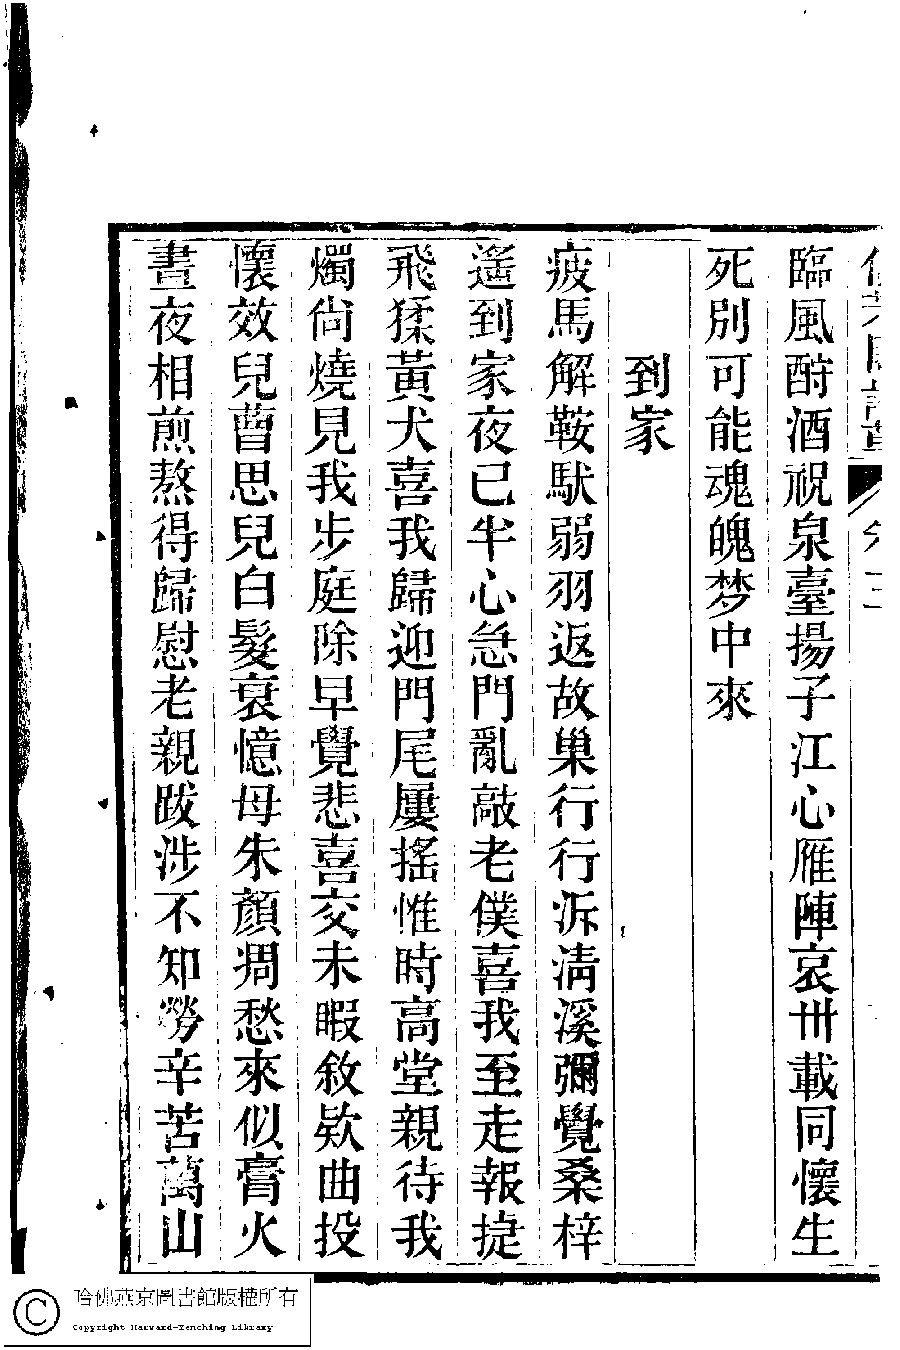 臨風酹酒祝泉臺揚子江心雁陣哀卅載同懷生
死別可能魂魄梦中來
到家
疲馬解鞍馱弱羽返故巢行行泝清溪彌覺桑梓
遙到家夜已半心急門亂敲老僕喜我至走報捷
飛猱黃犬喜我歸迎門尾屢搖惟時高堂親待我
燭尙燒見我步庭除早覺悲喜交未暇敘欵曲投
懷效兒曹思兒白髮衰憶母朱顏凋愁來似膏火
晝夜相煎熬得歸慰老親跋涉不知勞辛苦萬山
哈佛燕京圖書館版權所有
Copyright Harvard-Yenching Library